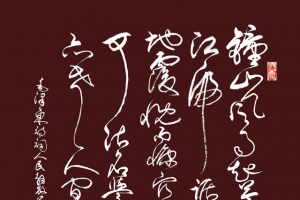 鐘山风雨起
江虎踞
地覆慨而慷宜
可沽名学
亦老人间
毛泽东诗词人民解放